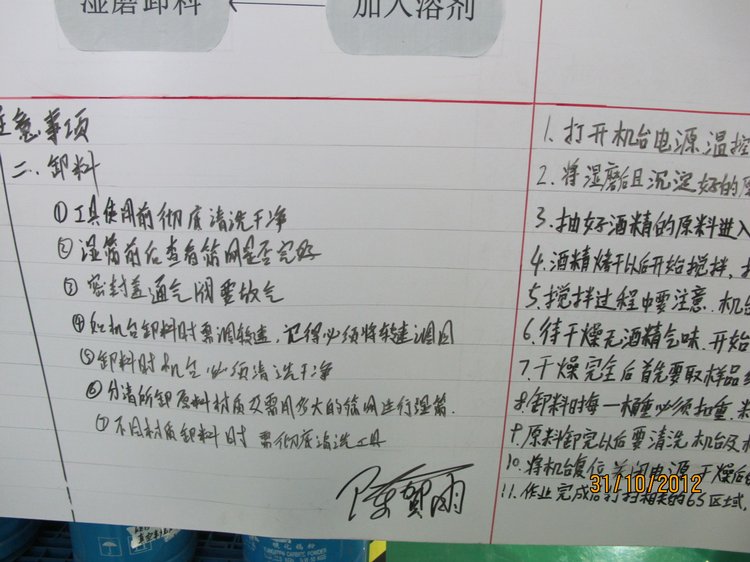 湿磨卸料
加入溶剂
注意事项
二.卸料
①工具使用前彻底清洗干净
②湿筛前后查看筛网是否完好
③密封盖通气阀要放气
④如机台卸料时需调转速,记得必须将转速调回
⑤卸料时机台必须清洗干净
⑥分清所卸原料材质及需用多大的筛网进行湿筛.
⑦不同材质卸料时需彻底清洗工具
1.打开机台电源.温控
2.将湿磨后且沉淀好的原
3.抽好酒精的原料进入
4.酒精烤干以后开始搅拌,
5.搅拌过程中要注意.机台
6.待干燥无酒精气味.开始
7.干燥完全后首先要取样品
8.卸料时每一桶重必须扣重.
9.原料卸完以后要清洗机台及
10.将机台复位.关闭电源.干燥后
11.作业完成后打扫相关的6S区域.
31/10/2012
碳化钨粉
TUNGSTEN CARBIDE POWDER